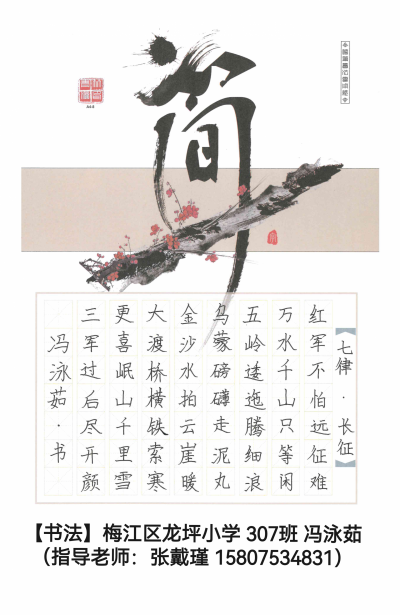 简
七律·长征
红军不怕远征难
万水千山只等闲
五岭逶迤腾细浪
乌蒙磅礴走泥丸
金沙水拍云崖暖
大渡桥横铁索寒
更喜岷山千里雪
三军过后尽开颜
冯泳茹·书
【书法】梅江区龙坪小学 307班 冯泳茹
（指导老师：张戴瑾 15807534831）